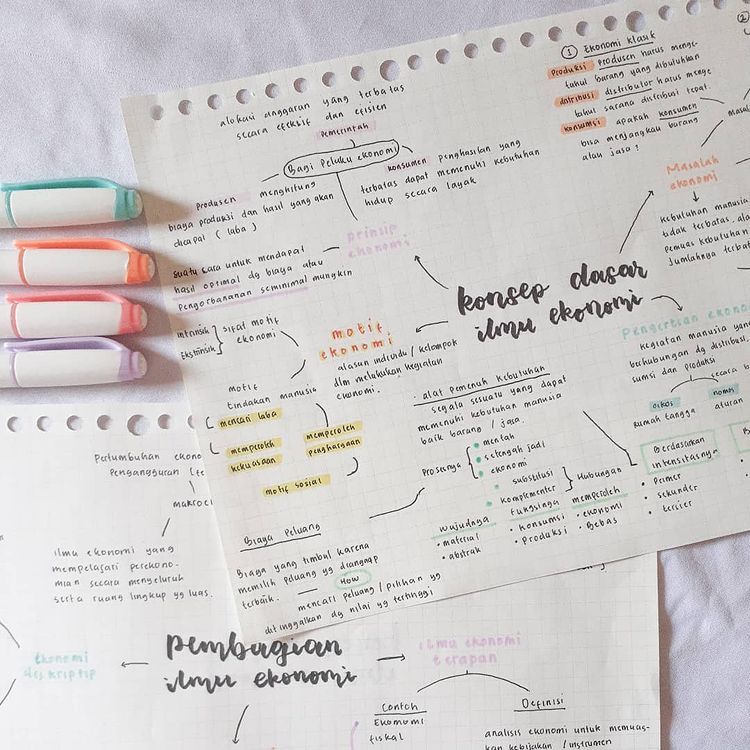 alokasi anggaran yang terbatas
secara efektif dan efisien
Pemerintah
Bagi Pelaku ekonomi
produsen menghitung
biaya produksi dan hasil yang akan
dicapai ( laba )
konsumen penghasilan yang
terbatas dapat memenuhi kebutuhan
hidup secara layak
prinsip
ekonomi
suatu cara untuk mendapat
hasil optimal dg biaya atau
pengorbananan seminimal mungkin
① Ekonomi klasik
Produksi Produsen harus menge-
tahui barang yang dibutuhkan
distribusi distributor harus menge
tahui sarana distribusi tepat.
konsumsi apakah konsumen
bisa menjangkau barang
atau jasa ?
②
Masalah
ekonomi
kebutuhan manusia
tidak terbatas, al
pemuas kebutuhan
jumlahnya terbat
konsep dasar
ilmu ekonomi
Pengertian ekonomi
kegiatan manusia yan
berhubungan dg distribusi,
sumsi dan produksi
secara b
oikos
rumah tangga
nomos
aturan
intrinsik
Ekstrinsik
sifat motif
ekonomi
motif
ekonomi
alasan individu / kelompok
dlm melakukan kegiatan
ekonomi.
motif
tindakan manusia
mencari laba
memperoleh
kekuasaan
memperoleh
penghargaan
motif sosial
alat pemenuh kebutuhan
segala sesuatu yang dapat
memenuhi kebutuhan manusia
baik barang / jasa.
Prosesnya
mentah
setengah jadi
ekonomi
substitusi
komplementer
Hubungan
wujudnya
• material
• abstrak
fungsinya
• konsumsi
• Produksi
memperoleh
• ekonomi
• Bebas
Berdasarkan
intensitasnya
• Primer
• sekunder
• tersier
B
Biaya Peluang
Biaya yang timbul karena
memilih peluang yg dianggap
terbaik.
How
mencari peluang / pilihan yg
ditinggalkan dg nilai yg tertinggi
Pertumbuhan ekono
Pengangguran
makroe
ilmu ekonomi yang
mempelajari perekono-
mian secara menyeluruh
serta ruang lingkup yg luas.
pembagian
ilmu ekonomi
ekonomi
deskriptip
ilmu ekonomi
terapan
Contoh
Ekonomi
fiskal
Definisi
analisis ekonomi untuk memuas-
kan kebijakan / instrumen